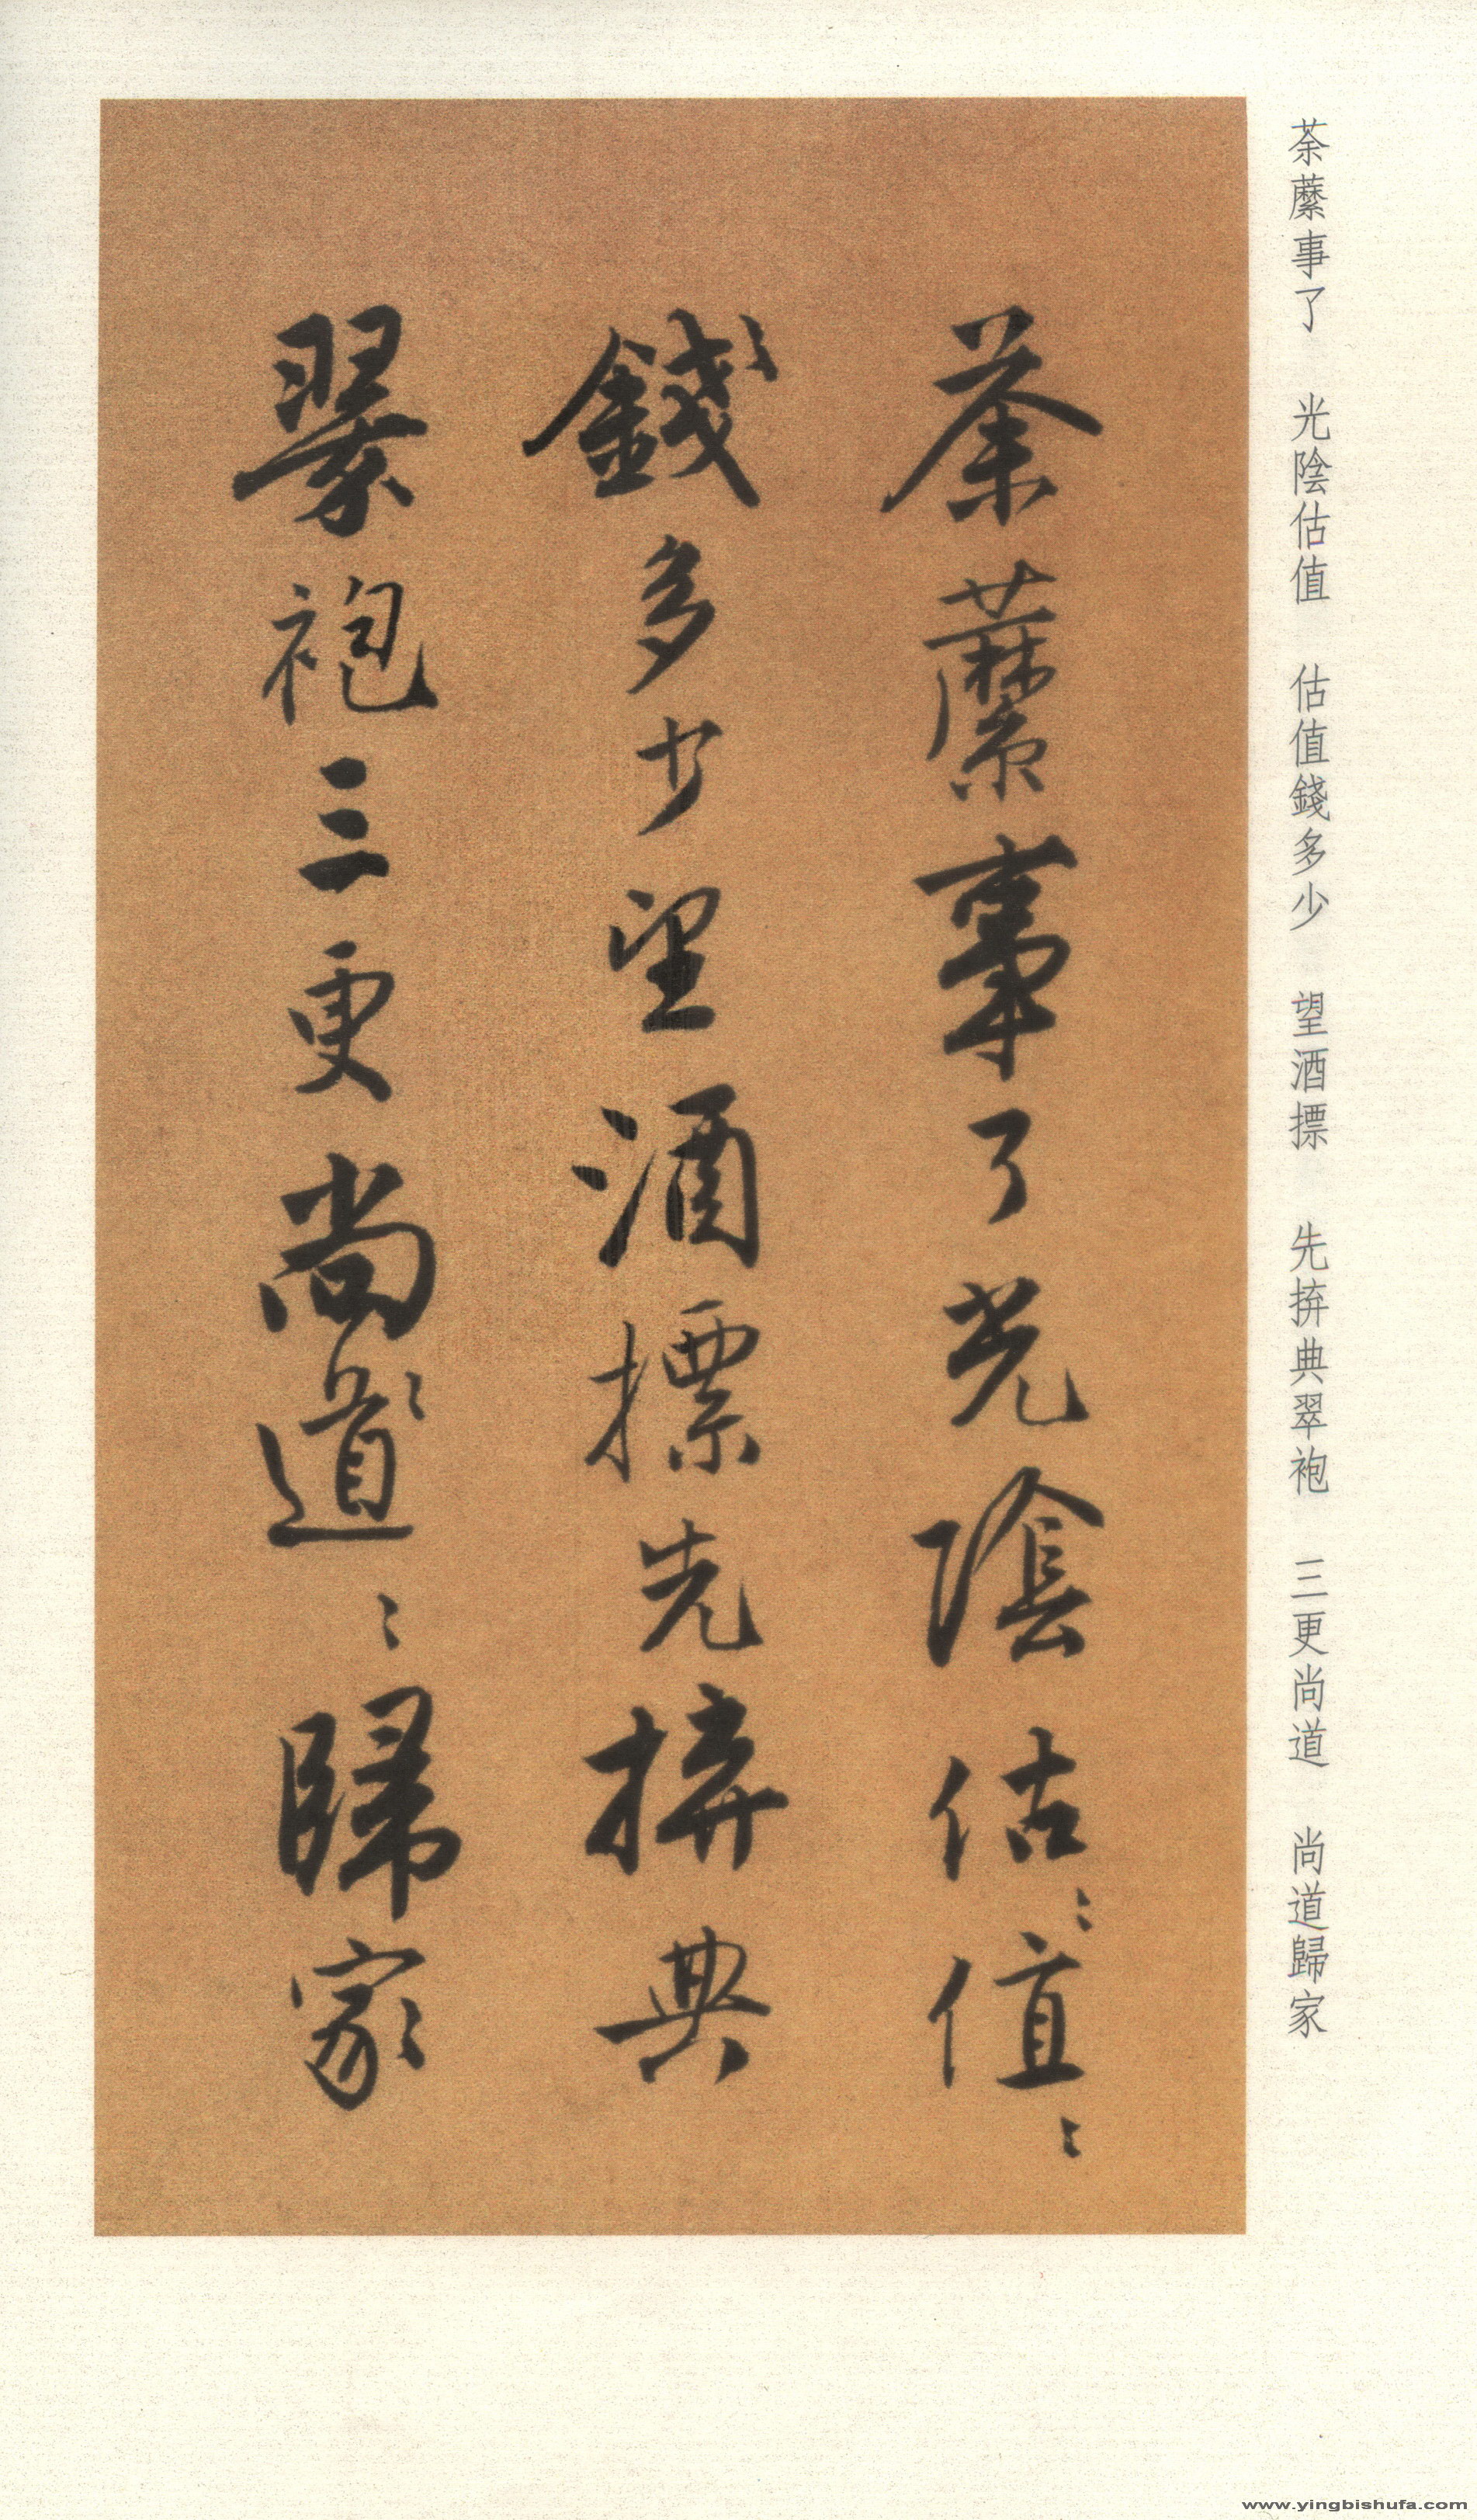 荼蘼事了 光陰估值 估值錢多少 望酒摽 先拚典翠袍 三更尚道 尚道歸家
荼蘼事了光陰估〻值〻
錢多少望酒摽先拚典
翠袍三更尚〻道〻歸家
www.yingbishufa.com